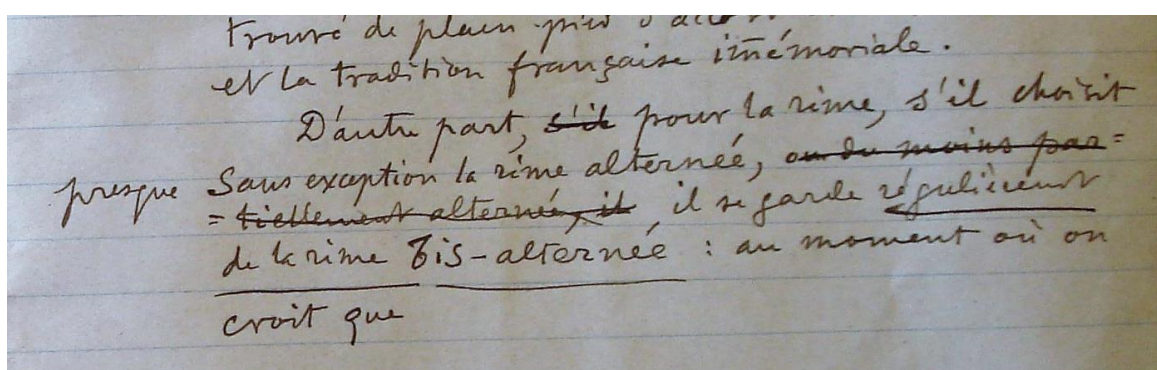 trouvé de plain-pied d'acc
et la tradition française im̄émoriale.
D'autre part, s'il pour la rime, s'il choisit
presque Sans exception la rime alternée, ou du moins par=
=tiellement alternée, il il se garde régulièrement
de la rime bis-alternée : au moment où on
croit que